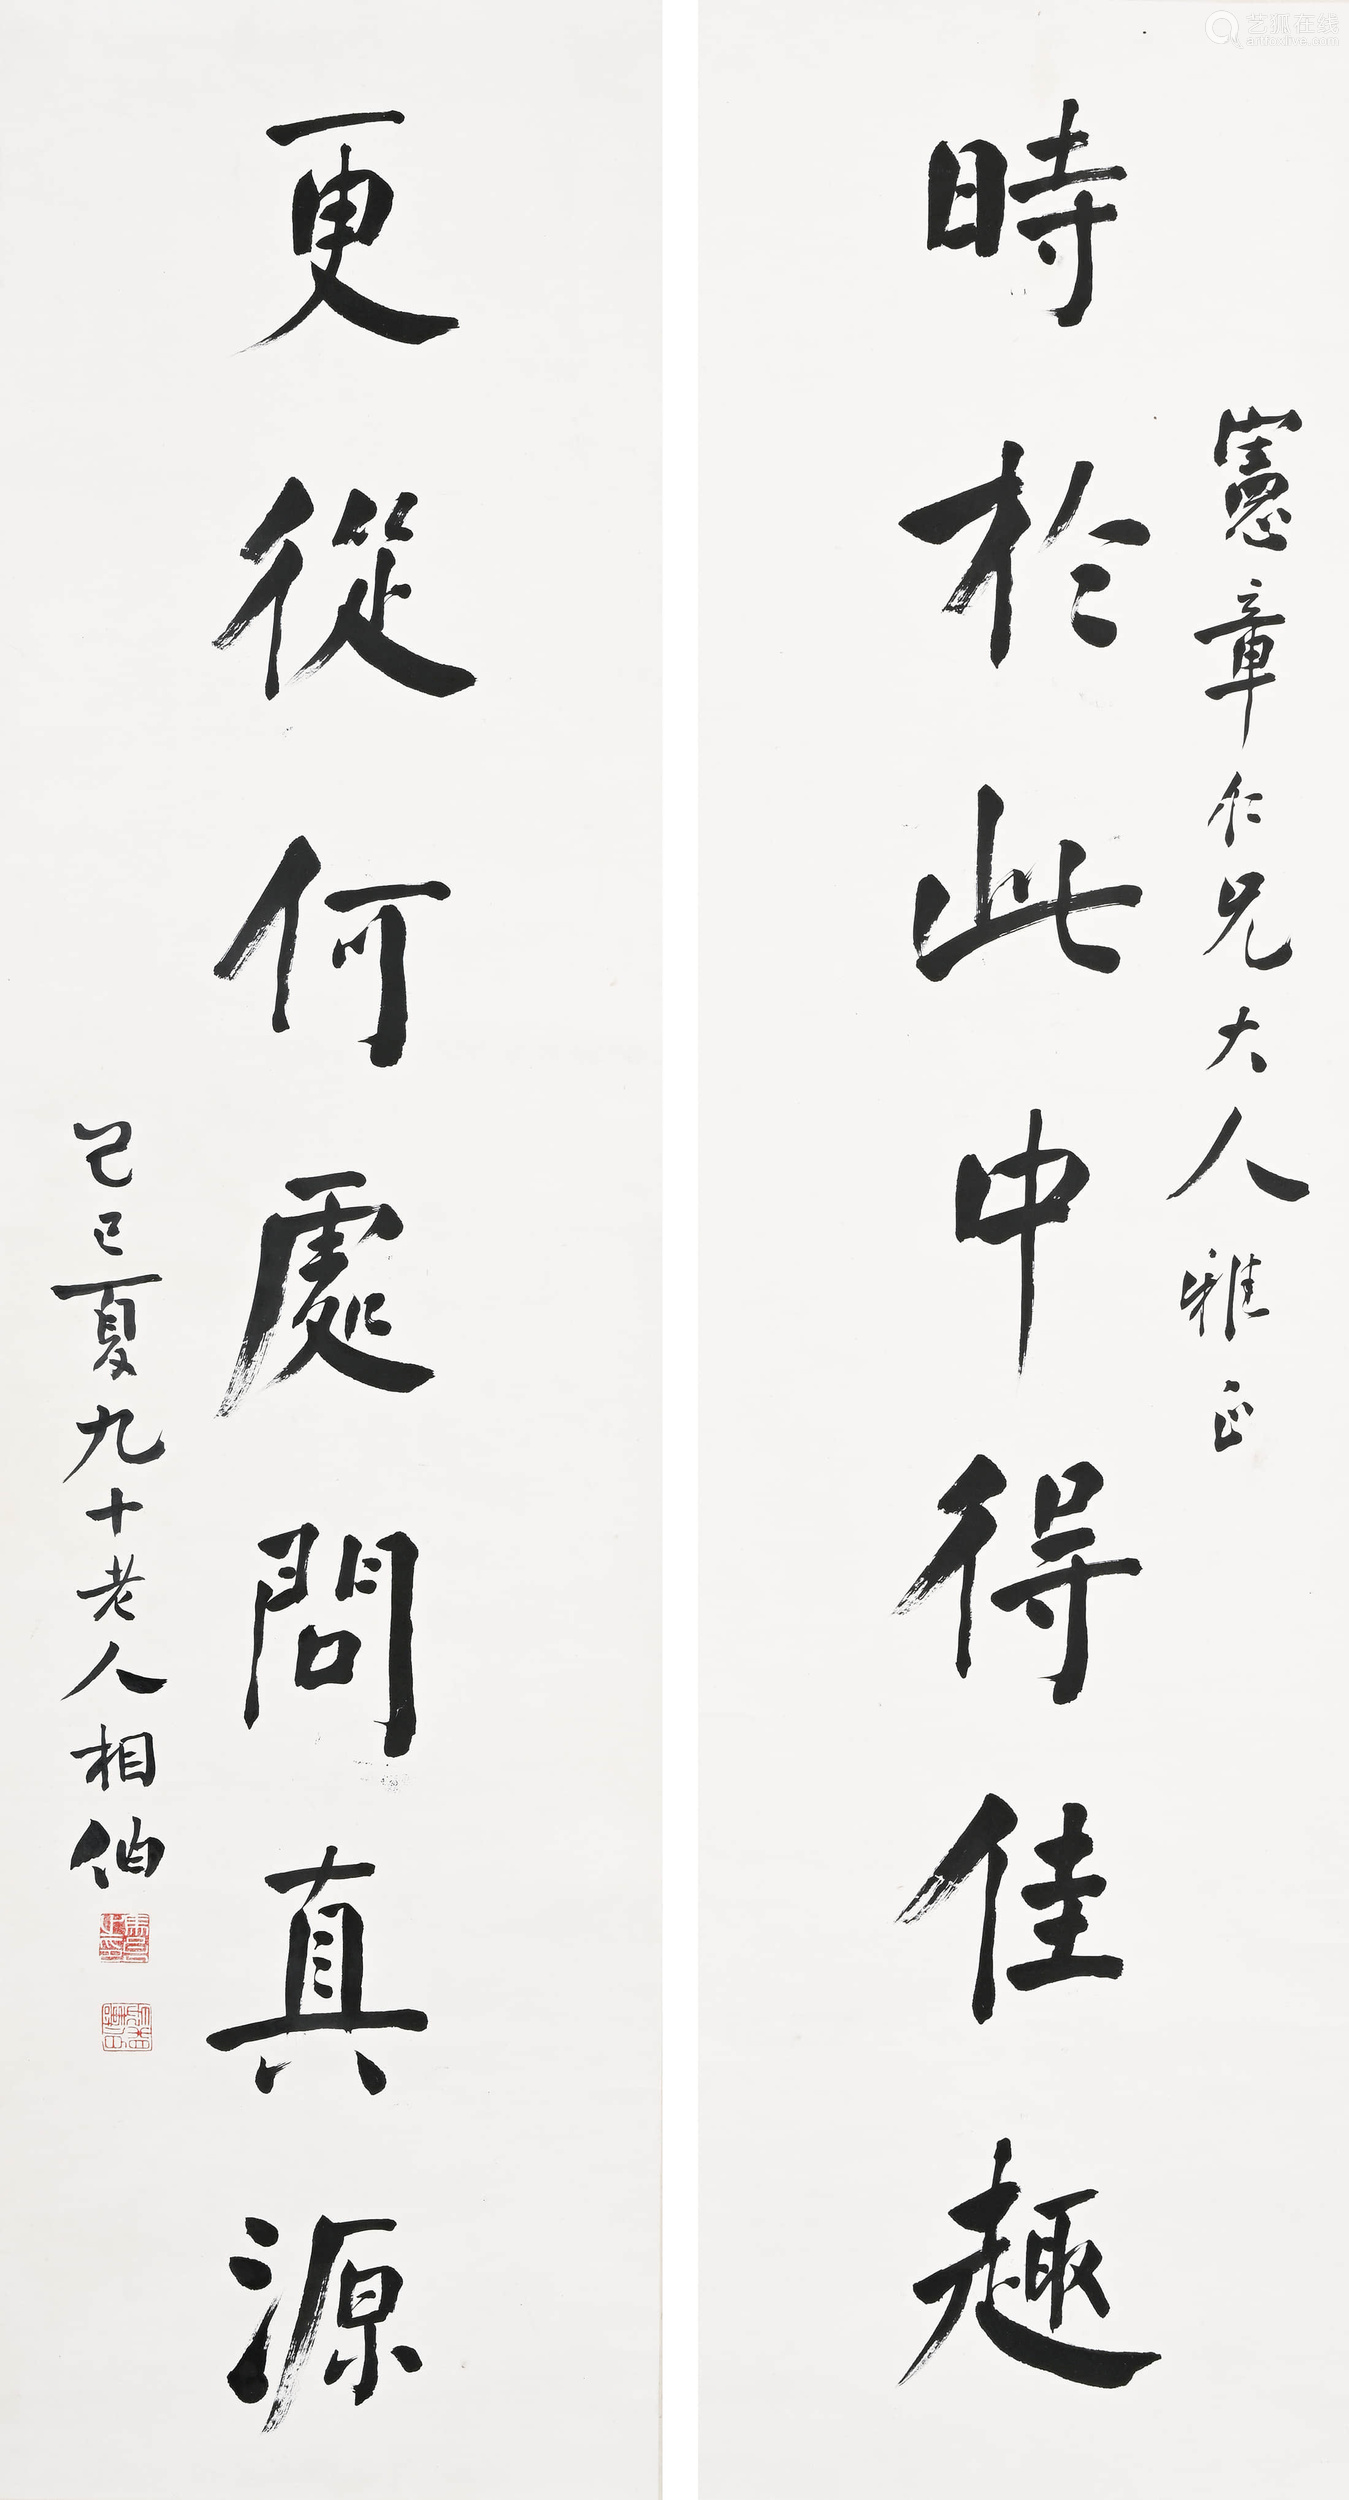 憲章仁兄大人雅正
時於此中得佳趣
更從何處問真源
己巳夏九十老人相伯
艺狐在线
artfoxlive.com